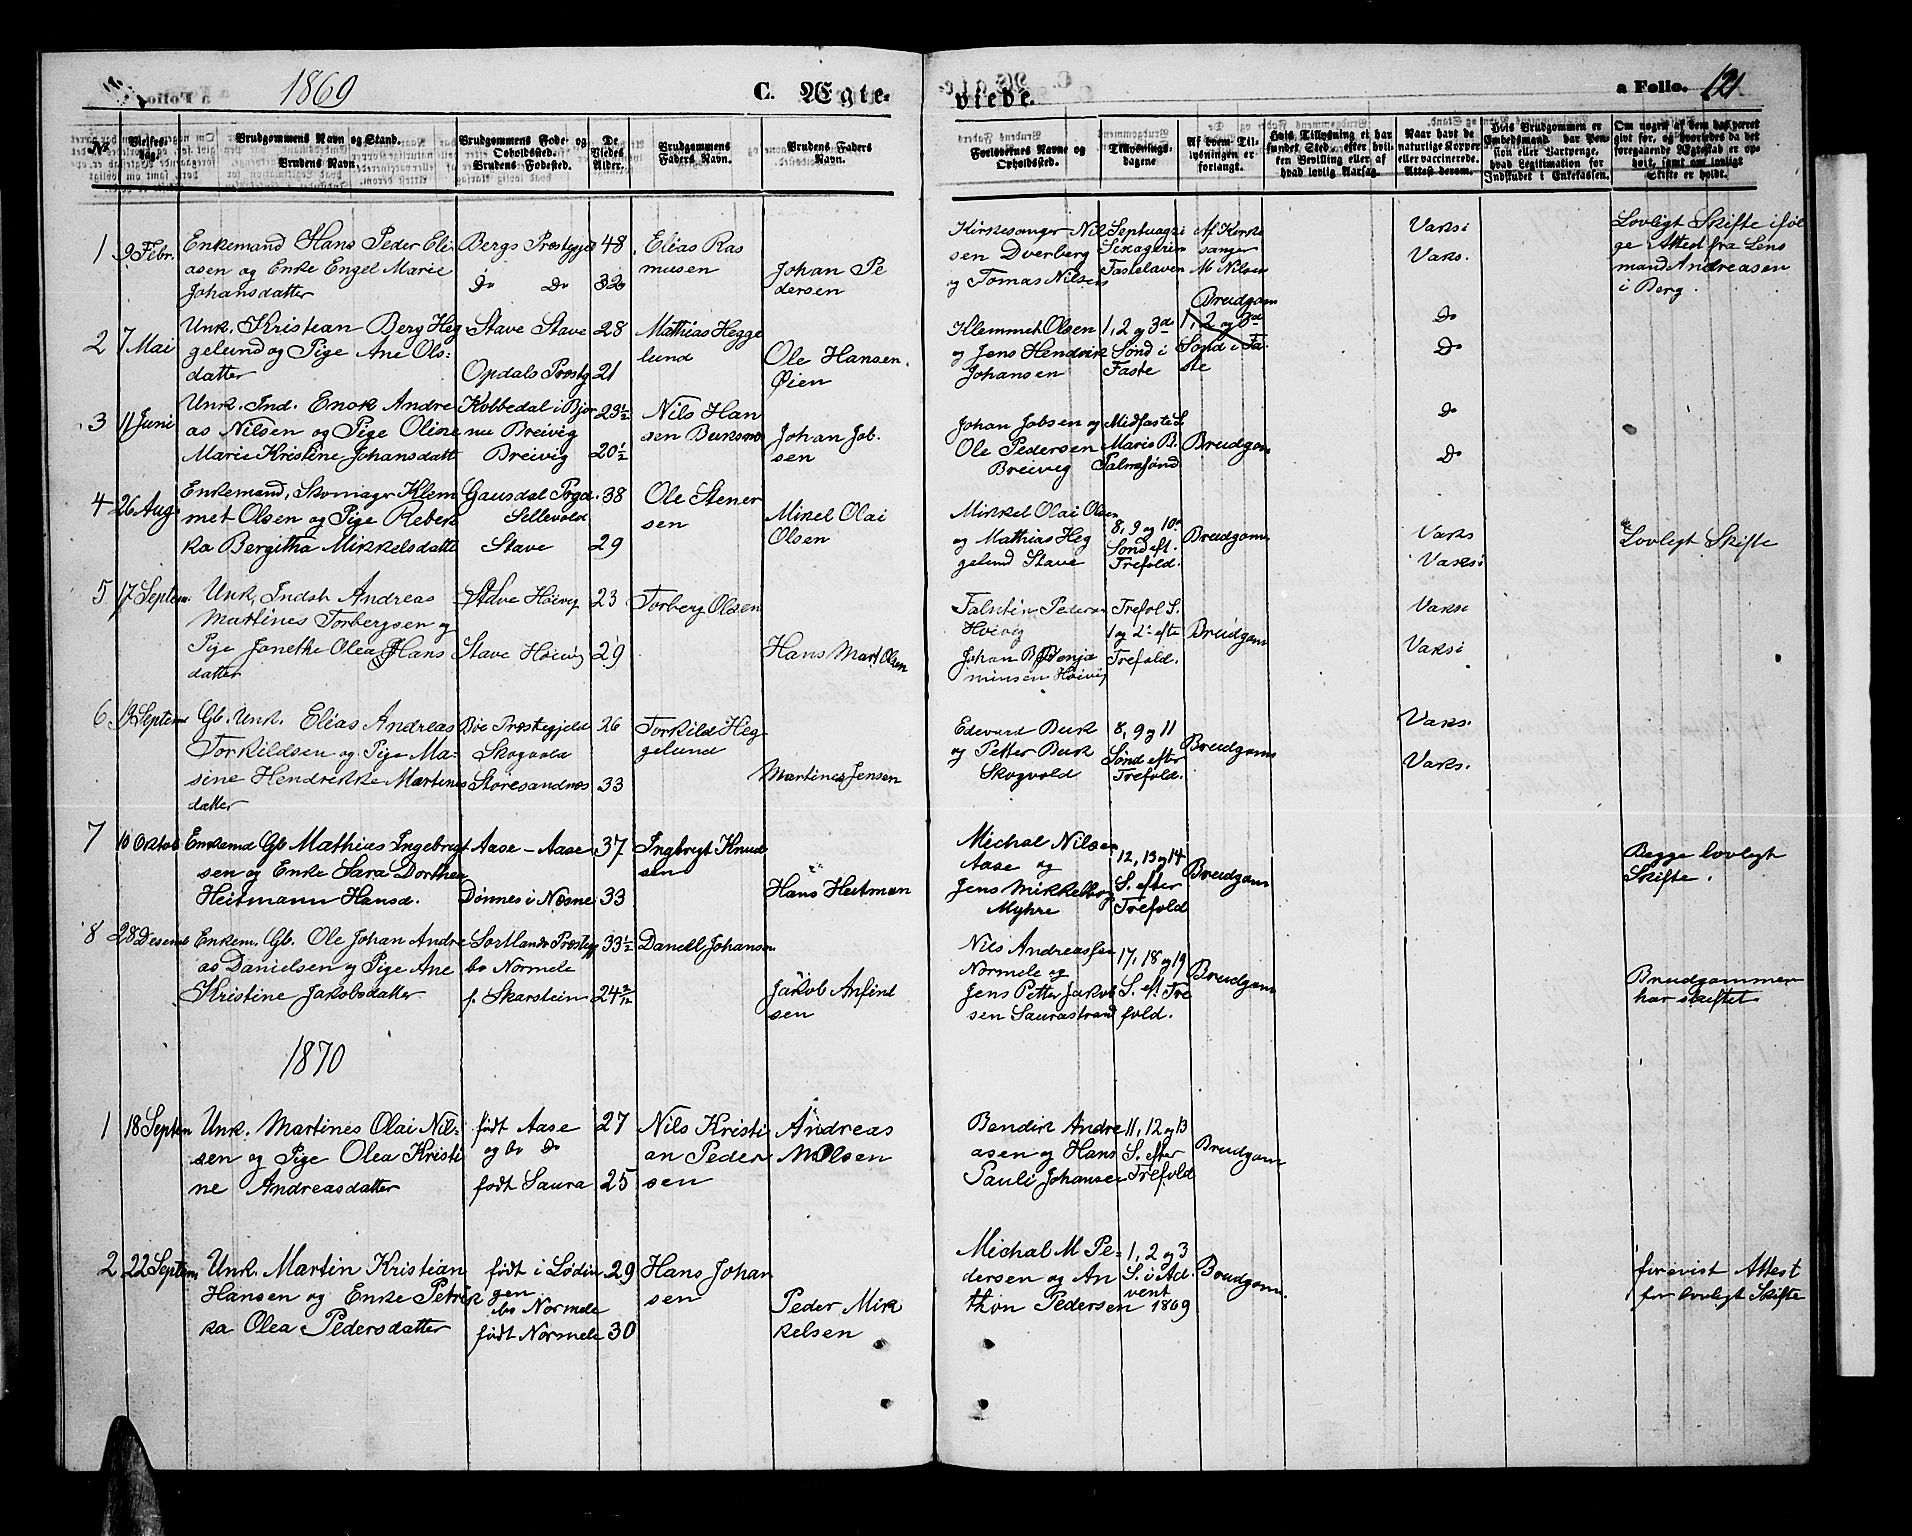 1869
C. Ægte-
viede.
a Folio. 121
No
Vielses-
dag.
Brudgommens Navn og Stand.
Brudens Navn.
Brudgommens Føde- og
Opholdssted.
Brudens Fødested.
De
Viedes
Alder.
Brudgommens
Faders Navn.
Brudens Faders
Navn.
Forlovernes Navne og
Opholdssted.
Tillysnings-
dagene
Af hvem Til-
lysningen er
forlangt.
Hvis Tillysning ei har
fundet Sted, efter hvil-
ken Bevilling eller af
hvad lovlig Aarsag.
Naar havt de
naturlige Kopper
eller vaccinerede.
Attest derom.
Hvis Brudgommen er
Embedsmand, har Pen-
sion eller Vartpenge,
hvad Legitimation for
Indskudet i Enkekassen.
Om nogen af dem har været
gift før, og hvorledes da det
foregaaende Ægteskab er op-
hævet, samt om lovligt
Skifte er holdt.
1 9 Febr. Enkemand Hans Peder Eli
asen og Enke Engel Marie
Johansdatter
Bergs Præstegjd
Do Do
48
32
Elias Ras
musen
Johan Pe
dersen
Kirkesanger Nil
sen Dverberg
og Tomas Nilsen
Septuagsi
Sexagesim
Fastelaven
Af Kirke
sanger
M Nilsen
Vaksi
Vaks.
Lovligt Skifte iføl
ge Attest fra Lens
mand Andreasen
i Berg.
2 7 Mai Unk. Kristian Berg Heg
gelund og Pige Ane Ols-
datter
Stave Stave
Opdals Præstg
28
21
Mathias Hegge
lund
Ole Hansen
Øien
Klemmet Olsen
og Jens Hendrik
Johansen
1, 2 og 3de
Sønd i
Faste
Brudgom
1, 2 og 3de
Sønd i Fa-
ste
Do
Do
3 11 Juni Unk. Ind. Enok Andre
as Nilsen og Pige Oline
Marie Kristine Johansdatt
Kobbedal i Bjør
nu Breivig
Breivig
23½
20½
Nils Han
sen Buksnes
Johan Job.
sen
Johan Jobsen og
Ole Pedersen
Breivig
Midfaste S.
Maria B.
Palmesønd
Brudgom
Do
Do
4 26 Aug. Enkemand, Skomagr Klem
met Olsen og Pige Rebek
ka Bergitha Mikkelsdatte
Gausdal Pgd.
Sellevold
Stave
38
29
Ole Stener
sen
Mikel Olai
Olsen
Mikkel Olai Olsen
og Mathias Heg
gelund Stave
8, 9 og 10de
Sond eft.
Trefold.
Brudgom
Vaks
Vaksi
Lovligt Skifte
5 17 Septem. Unk, Indst Andreas
Martines Torbergsen og
Pige Janethe Olea Hans
datter
Stave Høivig
Stave Høivig
23
29
Torberg Olsen
Hans Mart Olsen
Falntin Pederse
Høivig
Johan Benja
minsen Høivig
Trefol S.
1 og 2 efte
Trefold.
Brudgom
Vaksi
Vaksi
6 19 Septem Gb. Unk. Elias Andreas
Torkildsen og Pige Ma-
sine Hendrikke Martines
datter
Bøe Præstegjeld
Skogvold
Storesandnes
26
33
Torkild Heg
gelund
Martines Jensen
Edevard Buk
og Petter Buk
Skogvold
8, 9 og 11
Sønd efter
Trefold.
Brudgom
Vaks.
Vaks.
7 10 Oktob Enkemd Gb Mathias Ingebrigt
sen og Enke Sara Dorthea
Heitmann Hansd.
Aase - Aase
Dønnes i Næsne
37
33
Ingbrigt Knud
sen
Hans Heitman
Michal Nilsen
Aase og
Jens Mikkelborg
Myhre
12, 13 og 14
S. efter
Trefold
Brudgom
Begge lovligt
Skifte.
8 28 Desemb Enkem. Gb. Ole Johan Andre
as Danielsen og Pige Ane
Kristine Jakobsdatter
Sortlands Præstegj
bo Normele
f. Skarstein
33½
24 2/12
Daniel Johansen
Jakob Anfind
sen
Nils Andreassen
Normele og
Jens Petter Jakob
sen Saurastrand
17, 18 og 19
S. eft Tre
fold.
Brudgom
Brudgommen
har skiftet
1870
1 18 Septem Unk. Martines Olai Nil-
sen og Pige Olea Kristi
ne Andreasdatter
født Aase
og bo Do
født Saura
27
25
Nils Kristi
an Peder
sen
Andreas
M Olsen
Bendik Andre
asen og Hans
Pauli Johansen
11, 12 og 13
S. efter
Trefold
Brudgom
2 22 Septem Unk. Martin Kristian
Hansen og Enke Petrik
ka Olea Pedersdatter
født i Lødin
gen
bo Normele
født Normele
29
30
Hans Johan
sen
Peder Mik
kelsen
Michal M Pe-
dersen og An
thon Pedersen
1, 2 og 3
S. i Ad-
vent
1869
Brudgom.
forevist Attest
for lovligt Skifte